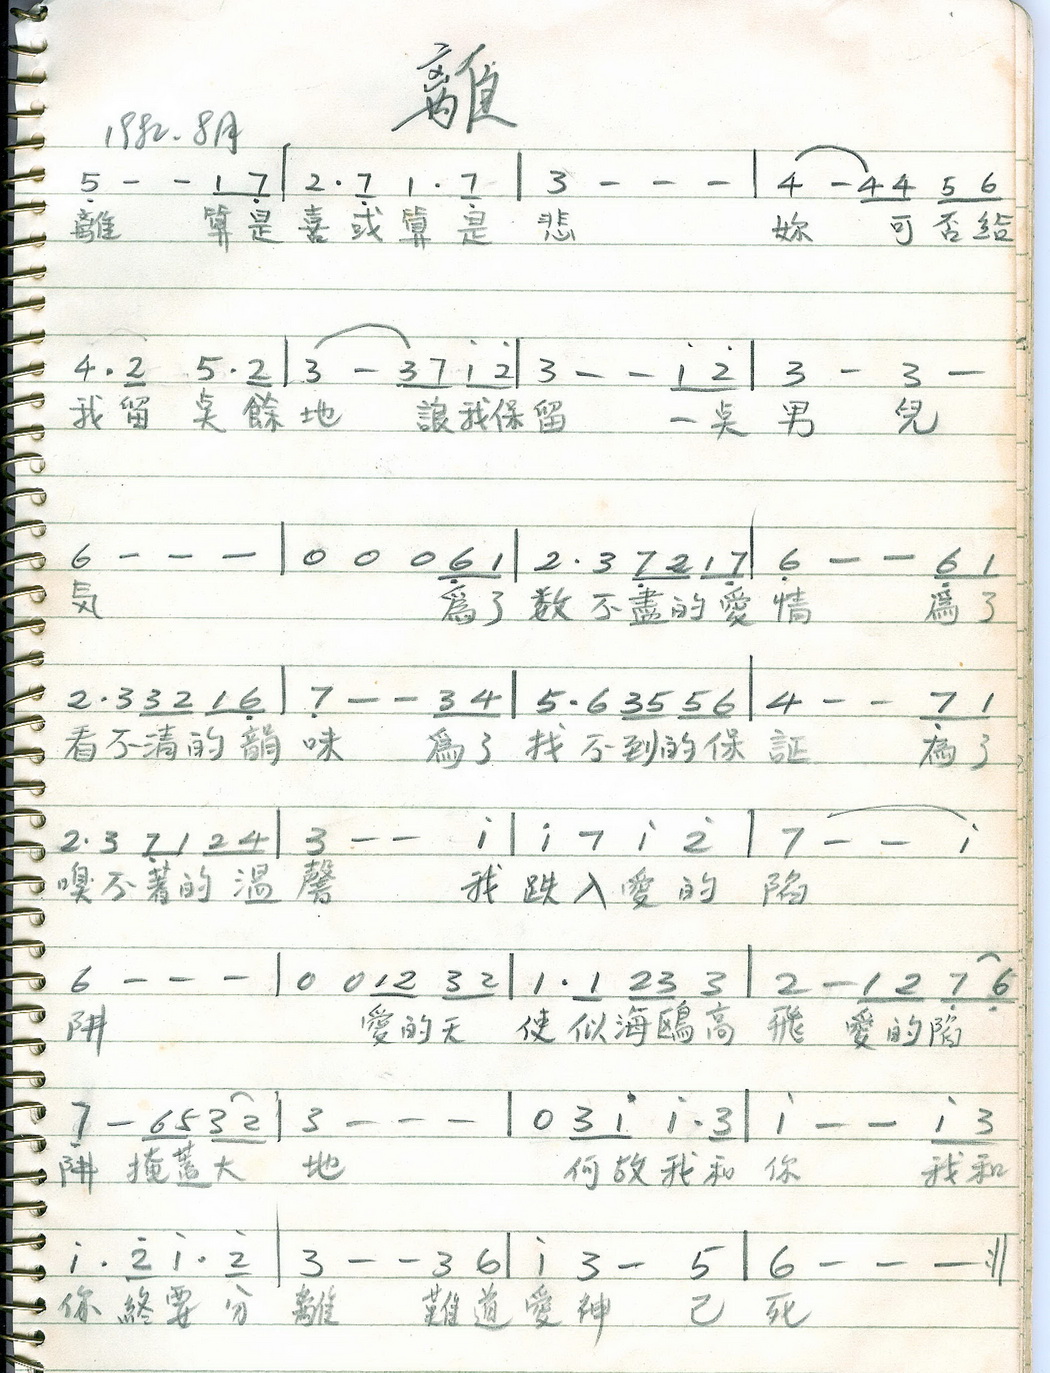 離
1982.8月
5 - - 1 7 | 2 · 7 1 · 7 | 3 - - - | 4 - 4 4 5 6
離 算是 喜或算是 悲 妳 可否給
4 · 2 5 · 2 | 3 - 3 7 i 2̇ | 3 - - i 2̇ | 3 - 3 -
我留 奌餘 地 讓我保留 一奌 男 兒
6 - - - | 0 0 0 6 1 | 2 · 3 7 2 1 7 | 6 - - 6 1
気 爲了 数不盡的愛 情 爲了
2 · 3 3 2 1 6 | 7 - - 3 4 | 5 · 6 3 5 5 6 | 4 - - 7 1
看不清的韻 味 爲了 找不到的保 証 為了
2 · 3 7 1 2 4 | 3 - - i | i 7 i 2̇ | 7 - - i
嗅不著的溫 馨 我 跌入愛的 陷
6 - - - | 0 0 1 2 3 2 | 1 · 1 2 3 3 | 2 - 1 2 7 6
阱 愛的天 使似海鷗高 飛 愛的陷
7 - 6 5 3 2 | 3 - - - | 0 3 i i · 3 | i - - i 3
阱 掩蓋大 地 何故我和 你 我和
i · 2̇ i · 2̇ | 3 - - 3 6 | i 3 - 5 | 6 - - -
你終要分 離 難道 愛神 已 死